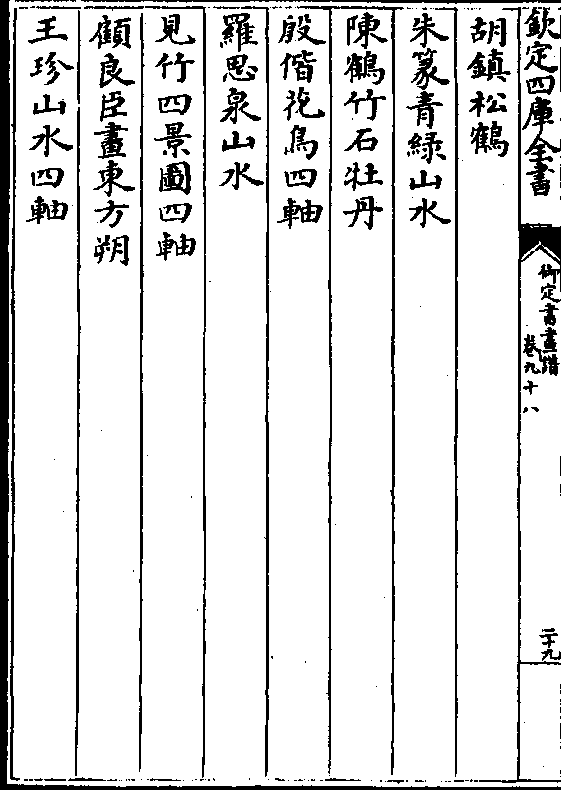 欽定四庫全書
御定書畫譜
卷九十八
二十九
胡鎮松鶴
朱篆青綠山水
陳鶴竹石牡丹
殷偕花鳥四軸
羅思泉山水
見竹四景圖四軸
顧良臣畫東方朔
王珍山水四軸